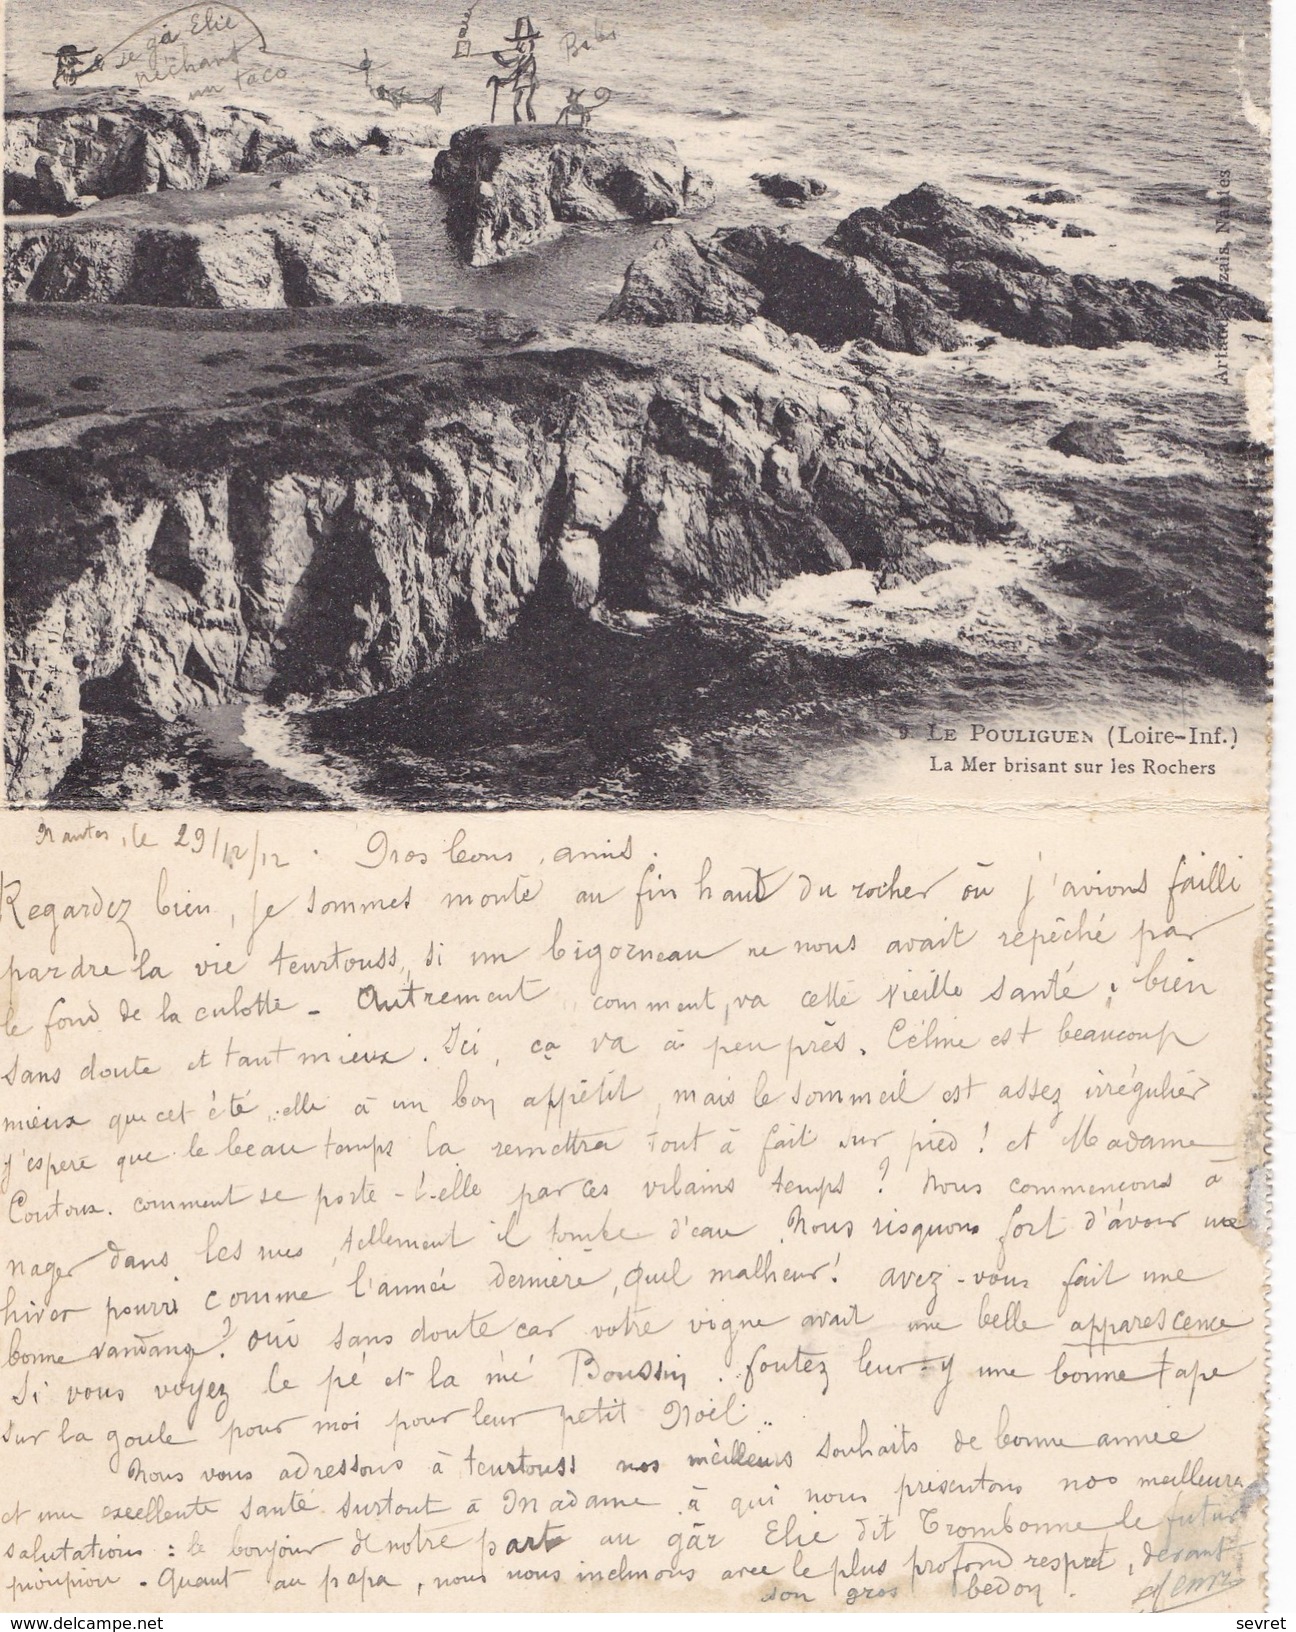 le gâ Elie
pêchant
un taco
Bibi
Artaud Nozais, Nantes
9. LE POULIGUEN (Loire-Inf.)
La Mer brisant sur les Rochers
Nantes, le 29/12/12. Gros leons, amis.
Regardez bien, je sommes monté au fin haut du rocher où j'avions failli
pardre la vie teurtouss, si un bigorneau ne nous avait repêché par
le fond de la culotte - Autrement comment va cette vieille santé; bien
sans doute et tant mieux. Ici, ça va à peu près. Céline est beaucoup
mieux que cet été, elle à un bon appétit, mais le sommeil est assez irrégulier
j'espère que le beau temps la remettra tout à fait sur pied! et Madame
Coutoux. comment se porte-t-elle par ces vilains temps? Nous commençons à
nager dans les rues, tellement il tombe d'eau. Nous risquons fort d'avoir un
hiver pourri comme l'année dernière, quel malheur! avez-vous fait une
bonne vandange? oui sans doute car votre vigne avait une belle apparescence
Si vous voyez le pé et la mé Boussin. foutez leur-y une bonne tape
sur la goule pour moi pour leur petit Noël..
Nous vous adressons à teurtouss nos meilleurs souhaits de bonne année
et une excellente santé surtout à Madame à qui nous présentons nos meilleures
salutations: le bonjour de notre part au gâr Elie dit Trombonne, le futur
pioupiou. Quant au papa, nous nous inclinons avec le plus profond respet, devant
son gros bedon. Henri
www.delcampe.net
sevret